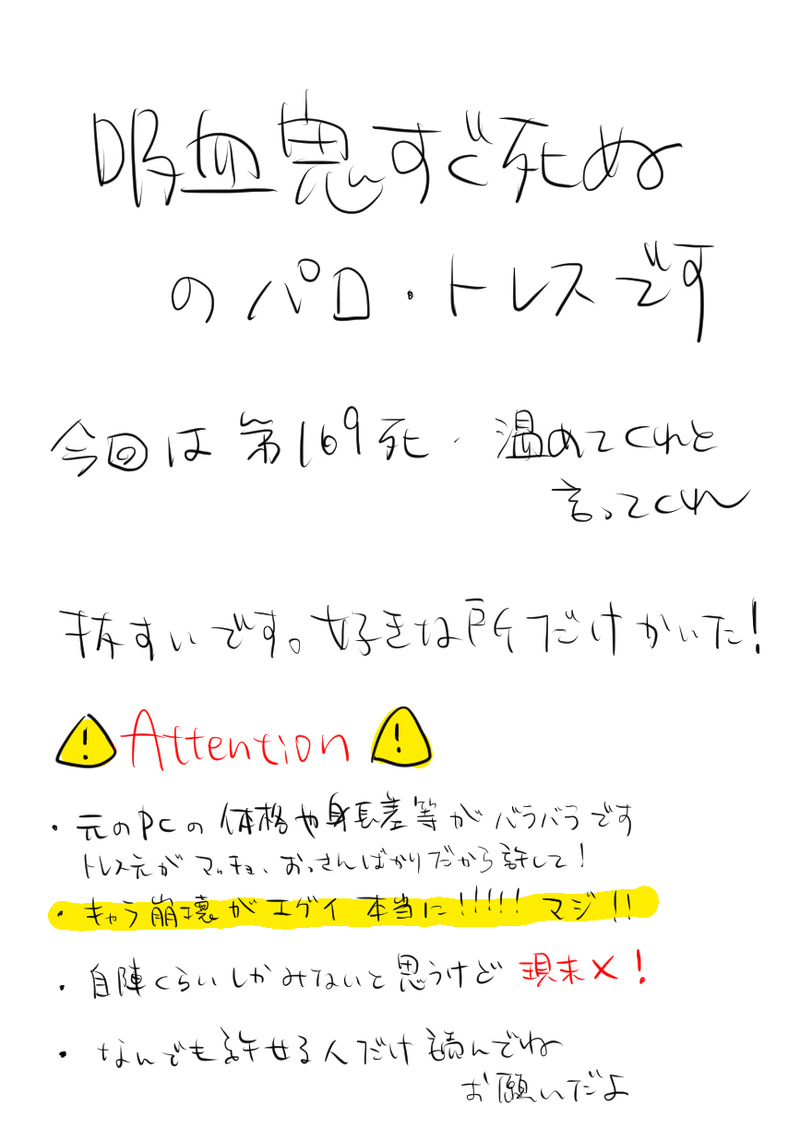 吸血鬼すぐ死ぬ
のパロ・トレスです
今回は第169死・温めてくれと
言ってくれ
抜すいです。好きな所だけかいた!
! Attention !
・元のPCの体格や身長差等がバラバラです
トレス元がマッチョ、おっさんばかりだから許して!
・キャラ崩壊がエグイ本当に!!!!! マジ!!
・自陣くらいしかみてないと思うけど 現未×!
・なんでも許せる人だけ読んでね
お願いだよ